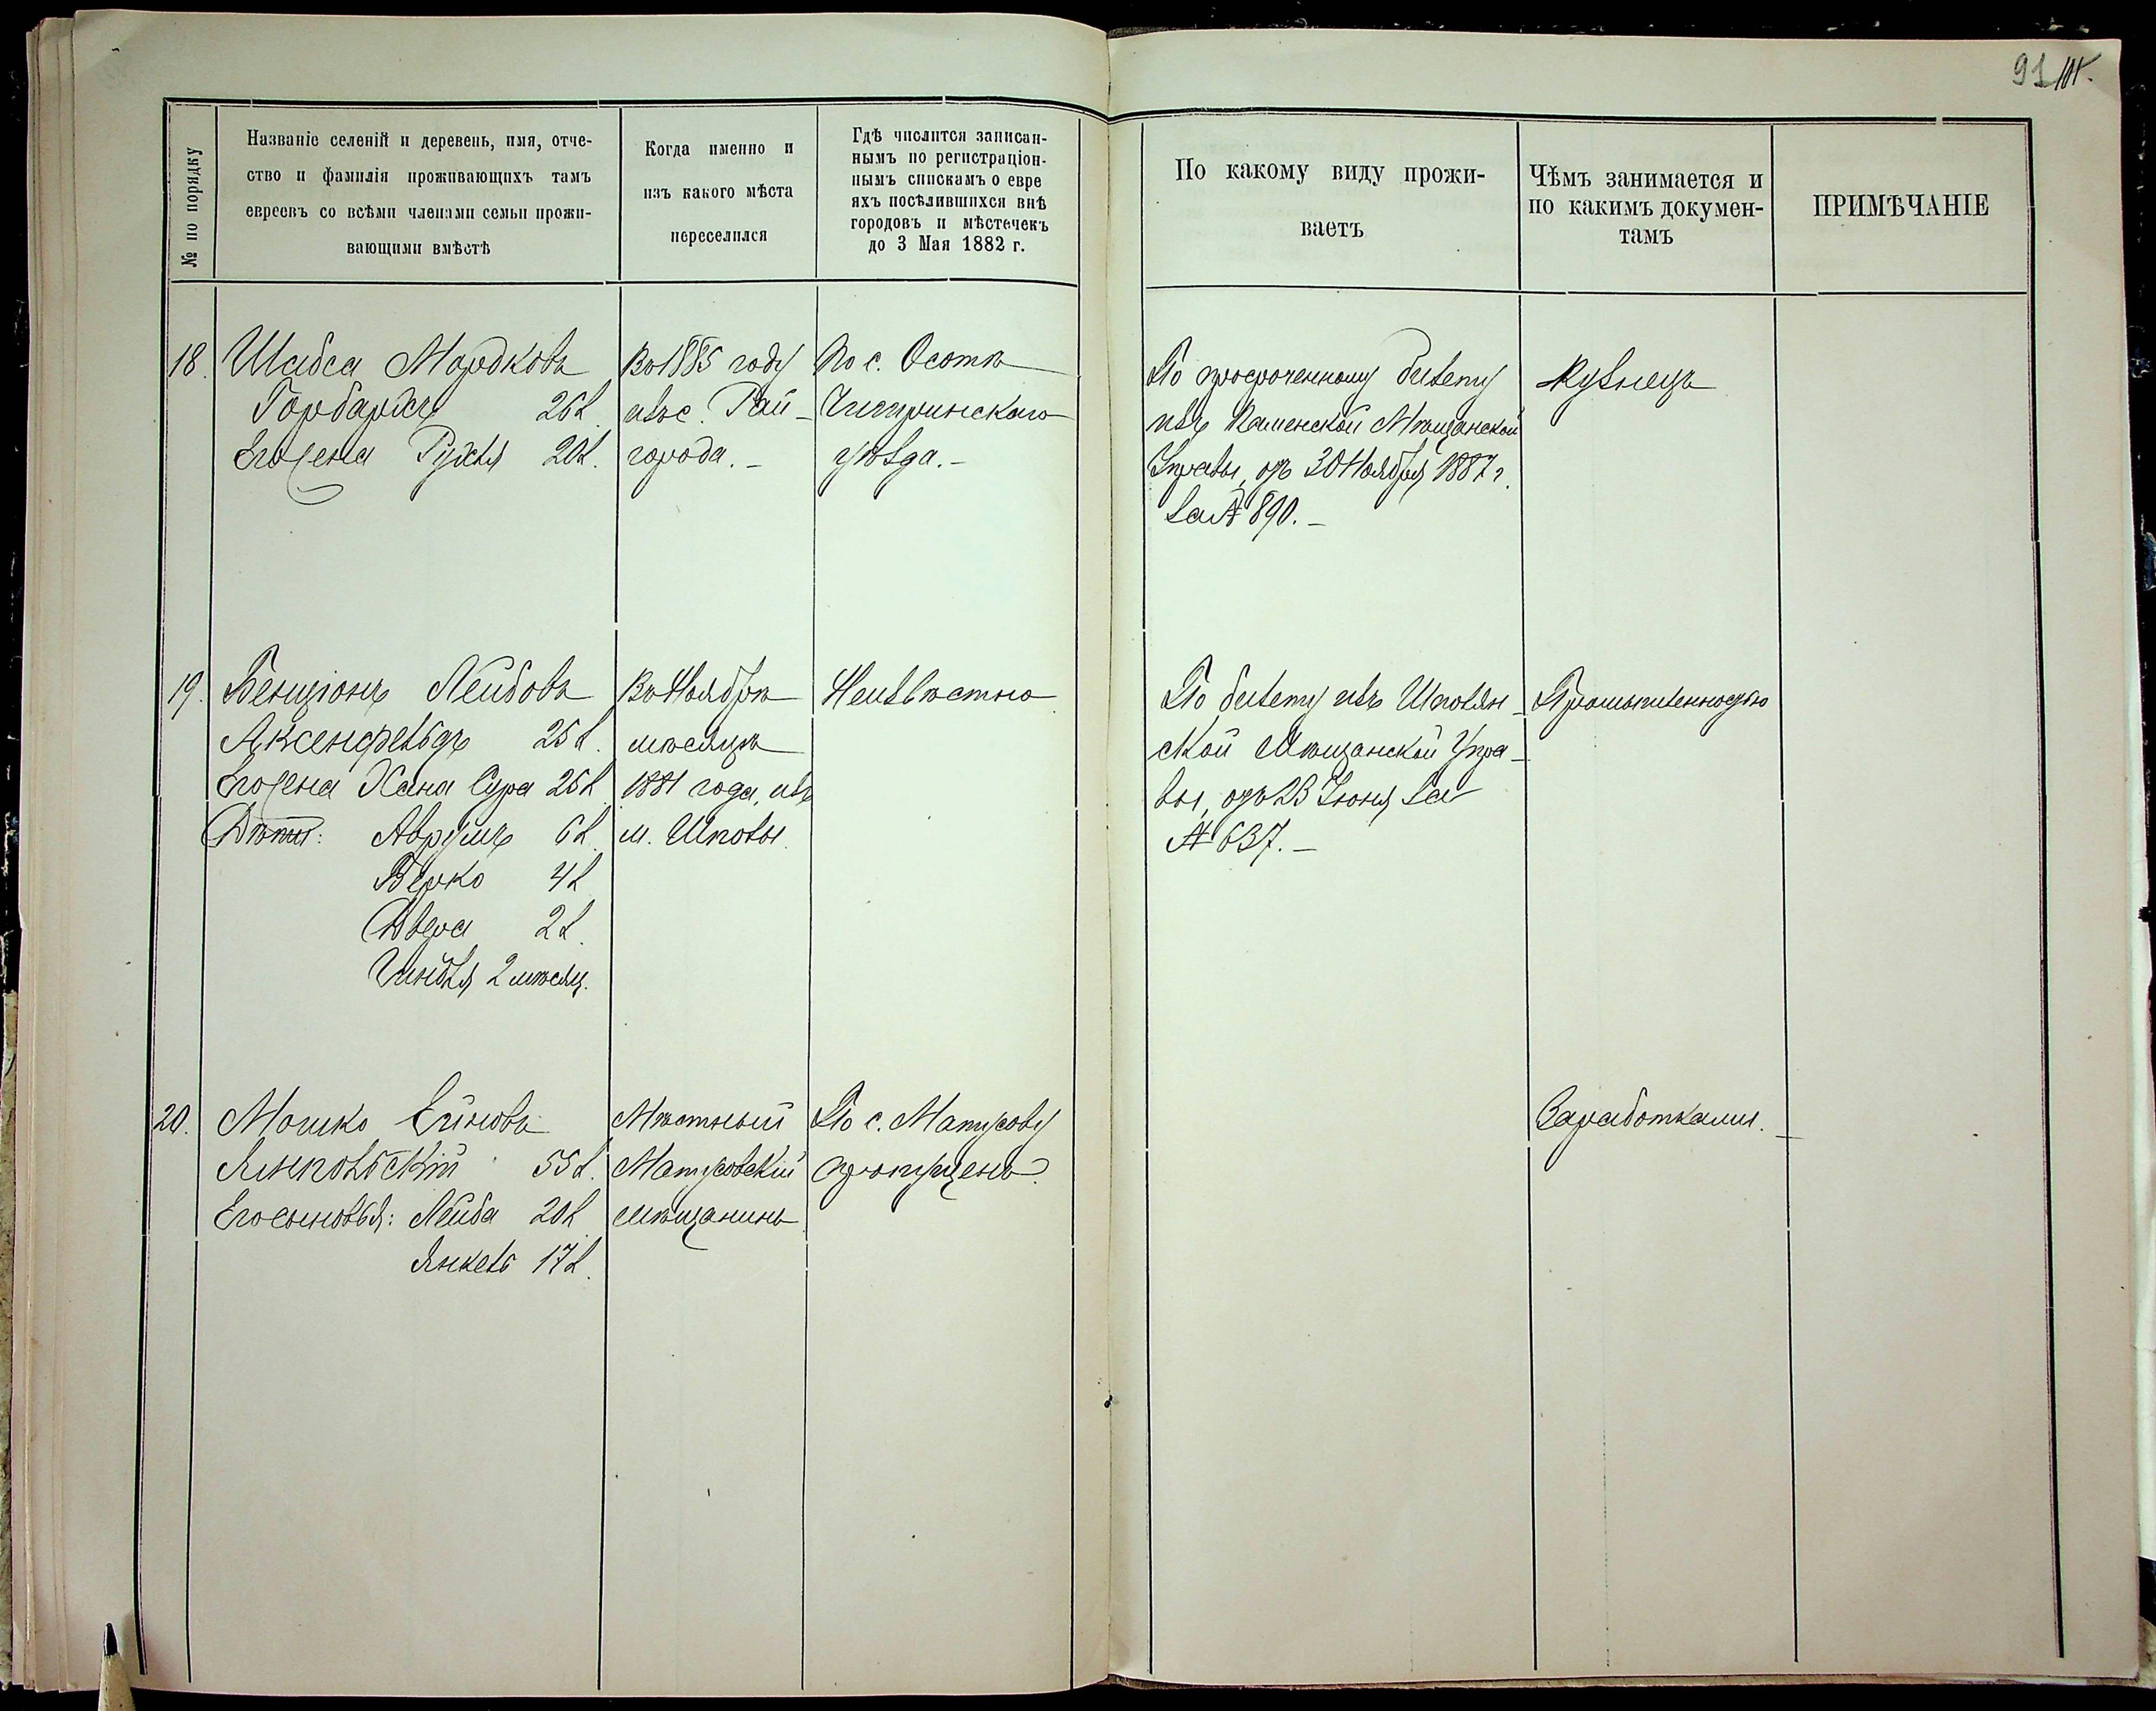 91
№ по порядку
Названіе селеній и деревень, имя, отче-
ство и фамилія проживающихъ тамъ
евреевъ со всѣми членами семьи прожи-
вающими вмѣстѣ
Когда именно и
изъ какого мѣста
переселился
Гдѣ числится записан-
нымъ по регистраціон-
нымъ спискамъ о евре
яхъ посѣлившихся внѣ
городовъ и мѣстечекъ
до 3 Мая 1882 г.
По какому виду прожи-
ваетъ
Чѣмъ занимается и
по какимъ докумен-
тамъ
ПРИМѢЧАНІЕ
18. Шабса Мордковъ
Горбаржъ 26 л.
Его жена Рухля 20 л.
Въ 1885 году
изъ с. Рай-
города.-
По с. Осотѣ
Чигиринскаго
уѣзда.-
По просроченному билету
изъ Каменской Мѣщанской
Управы, отъ 30 Ноября 1887 г.
за № 890.-
Кузнецъ
19. Бенціонъ Лейбовъ
Аксенфельдъ 25 л.
Его жена Хана Сура 25 л.
Дѣти: Аврумъ 6 л.
Берко 4 л.
Двера 2 л.
2 мѣсяц.
Въ Ноябрѣ
мѣсяцѣ
1881 года, изъ
м. Шполы.
Неизвѣстно
По билету изъ Шполян-
ской Мѣщанской Упра-
вы, отъ 23 Іюня за
№ 637.-
Промышленностью
20. Мошко
Янкольскій 55 л.
Его сыновья: Лейба 20 л.
Янкель 17 л.
Мѣстный
Матусовскій
мѣщанинъ
По с. Матусову
пропущенъ.
Заработками.-